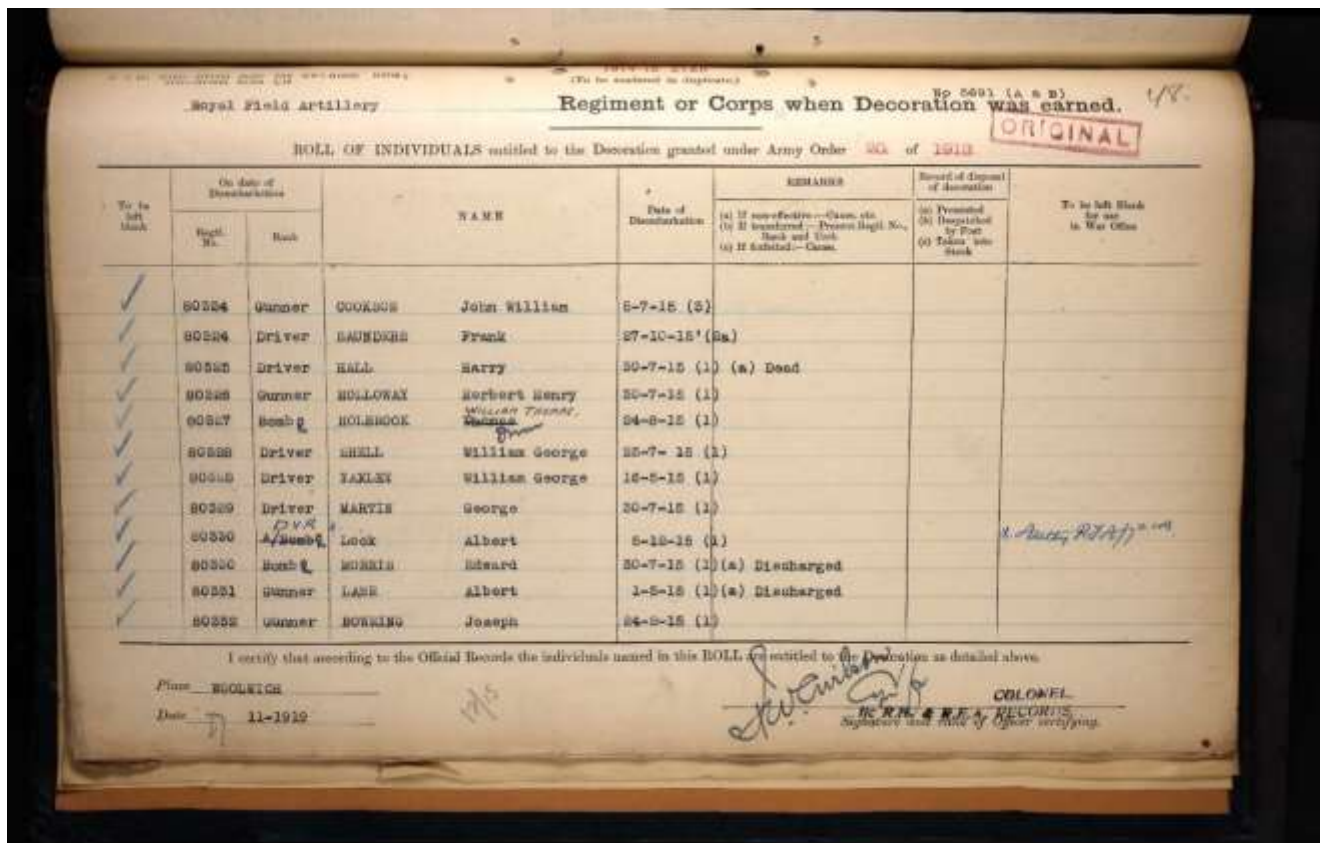 (To be rendered in duplicate.)
No 5691 (A & B)
Royal Field Artillery Regiment or Corps when Decoration was earned.
ORIGINAL
ROLL OF INDIVIDUALS entitled to the Decoration granted under Army Order 20. of 1919
To be left blank
On date of Disembarkation
Regtl. No.
Rank
NAME
Date of Disembarkation
REMARKS
(a) If non-effective:—Cause, etc.
(b) If transferred:—Present Regtl. No., Rank and Unit.
(c) If forfeited:—Cause.
Record of disposal of decoration
(a) Presented
(b) Despatched by Post
(c) Taken into Stock
To be left Blank for use in War Office
Gunner COOKSON John William 5-7-15 (3)
80324 Driver SAUNDERS Frank 27-10-15 (2a)
80325 Driver HALL Harry 30-7-15 (1) (a) Dead
80326 Gunner HOLLOWAY Herbert Henry 30-7-15 (1)
WILLIAM THOMAS.
80327 Bomb HOLBROOK Thomas 24-8-15 (1)
80328 Driver SHELL William George 25-7-15 (1)
Driver YAXLEY William George (1)
80329 Driver MARTIN George 30-7-15 (1)
DVR
80330 A/Bomb Look Albert (1)
Bomb MORRIS Edward 30-7-15 (1) (a) Discharged
80331 Gunner LANE Albert (1) (a) Discharged
80332 Gunner Joseph (1)
I certify that according to the Official Records the individuals named in this ROLL are entitled to the Decoration as detailed above.
Place WOOLWICH
Date 11-1919
COLONEL.
R.H. & R.F.A. RECORDS
Signature and Rank of Officer certifying.